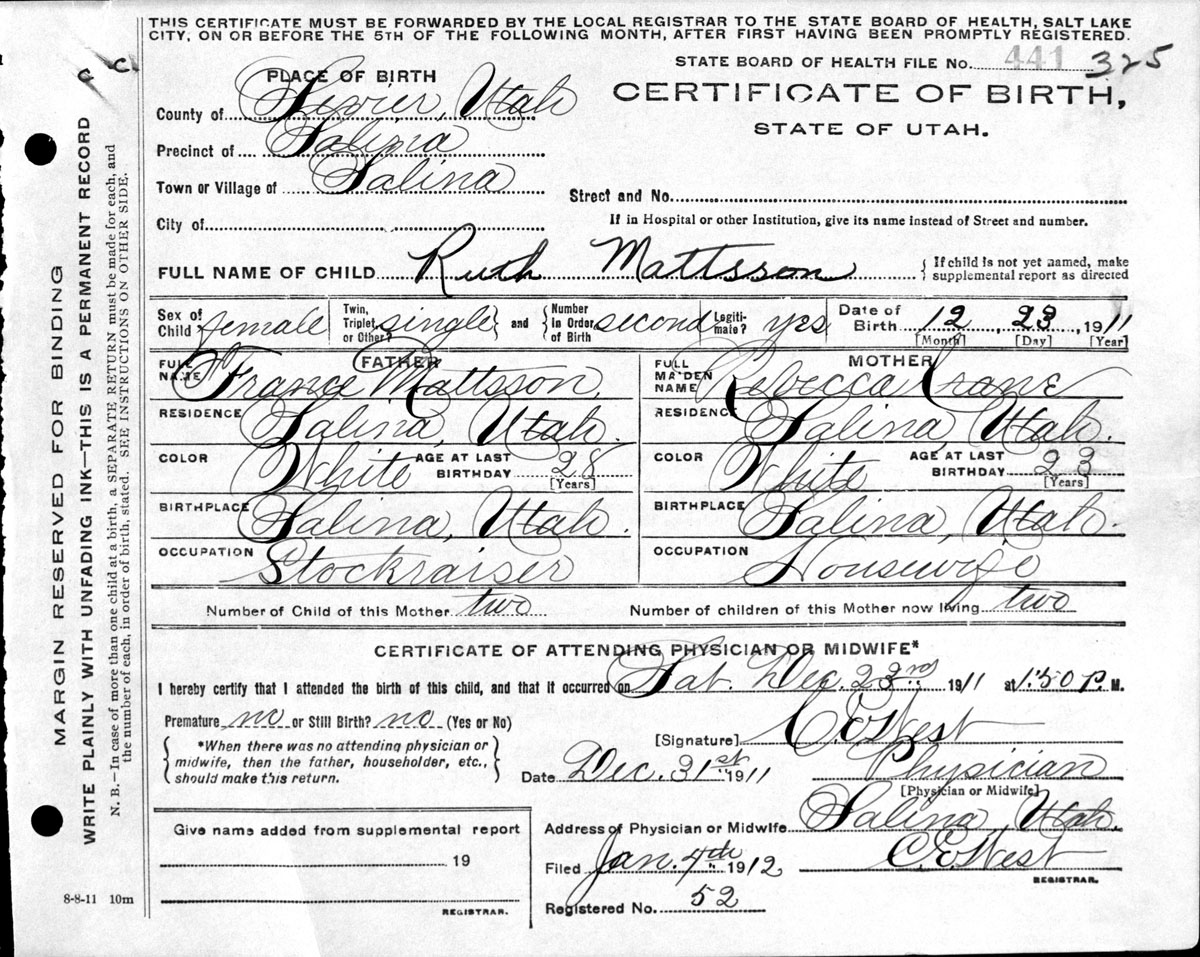 THIS CERTIFICATE MUST BE FORWARDED BY THE LOCAL REGISTRAR TO THE STATE BOARD OF HEALTH, SALT LAKE
CITY, ON OR BEFORE THE 5TH OF THE FOLLOWING MONTH, AFTER FIRST HAVING BEEN PROMPTLY REGISTERED.
STATE BOARD OF HEALTH FILE No. 441 325
PLACE OF BIRTH
CERTIFICATE OF BIRTH,
STATE OF UTAH.
County of Sevier, Utah
Precinct of Salina
Town or Village of Salina
Street and No.
City of
If in Hospital or other Institution, give its name instead of Street and number.
FULL NAME OF CHILD Ruth Mattsson { If child is not yet named, make
supplemental report as directed
Sex of Child female Twin, Triplet, or Other? single and Number in Order of Birth second Legiti-mate? yes Date of Birth 12, 23, 1911
[Month] [Day] [Year]
FATHER
FULL NAME France Mattsson,
RESIDENCE Salina, Utah.
COLOR White AGE AT LAST BIRTHDAY 28
[Years]
BIRTHPLACE Salina, Utah.
OCCUPATION Stockraiser
MOTHER
FULL MAIDEN NAME Rebecca Crane
RESIDENCE Salina, Utah.
COLOR White AGE AT LAST BIRTHDAY 23
[Years]
BIRTHPLACE Salina, Utah.
OCCUPATION Housewife
Number of Child of this Mother two Number of children of this Mother now living two
CERTIFICATE OF ATTENDING PHYSICIAN OR MIDWIFE*
I hereby certify that I attended the birth of this child, and that it occurred on Sat. Dec. 23rd, 1911 at 1:50 P. M.
Premature no or Still Birth? no (Yes or No)
*When there was no attending physician or
midwife, then the father, householder, etc.,
should make this return.
[Signature] C. E. West
Date Dec. 31st 1911 Physician
[Physician or Midwife]
Address of Physician or Midwife Salina, Utah,
Filed Jan. 4th 1912 C. E. West
REGISTRAR.
Registered No. 52
Give name added from supplemental report
19
REGISTRAR.
8-8-11 10m
MARGIN RESERVED FOR BINDING
WRITE PLAINLY WITH UNFADING INK—THIS IS A PERMANENT RECORD
N. B.—In case of more than one child at a birth, a SEPARATE RETURN must be made for each, and
the number of each, in order of birth, stated. SEE INSTRUCTIONS ON OTHER SIDE.